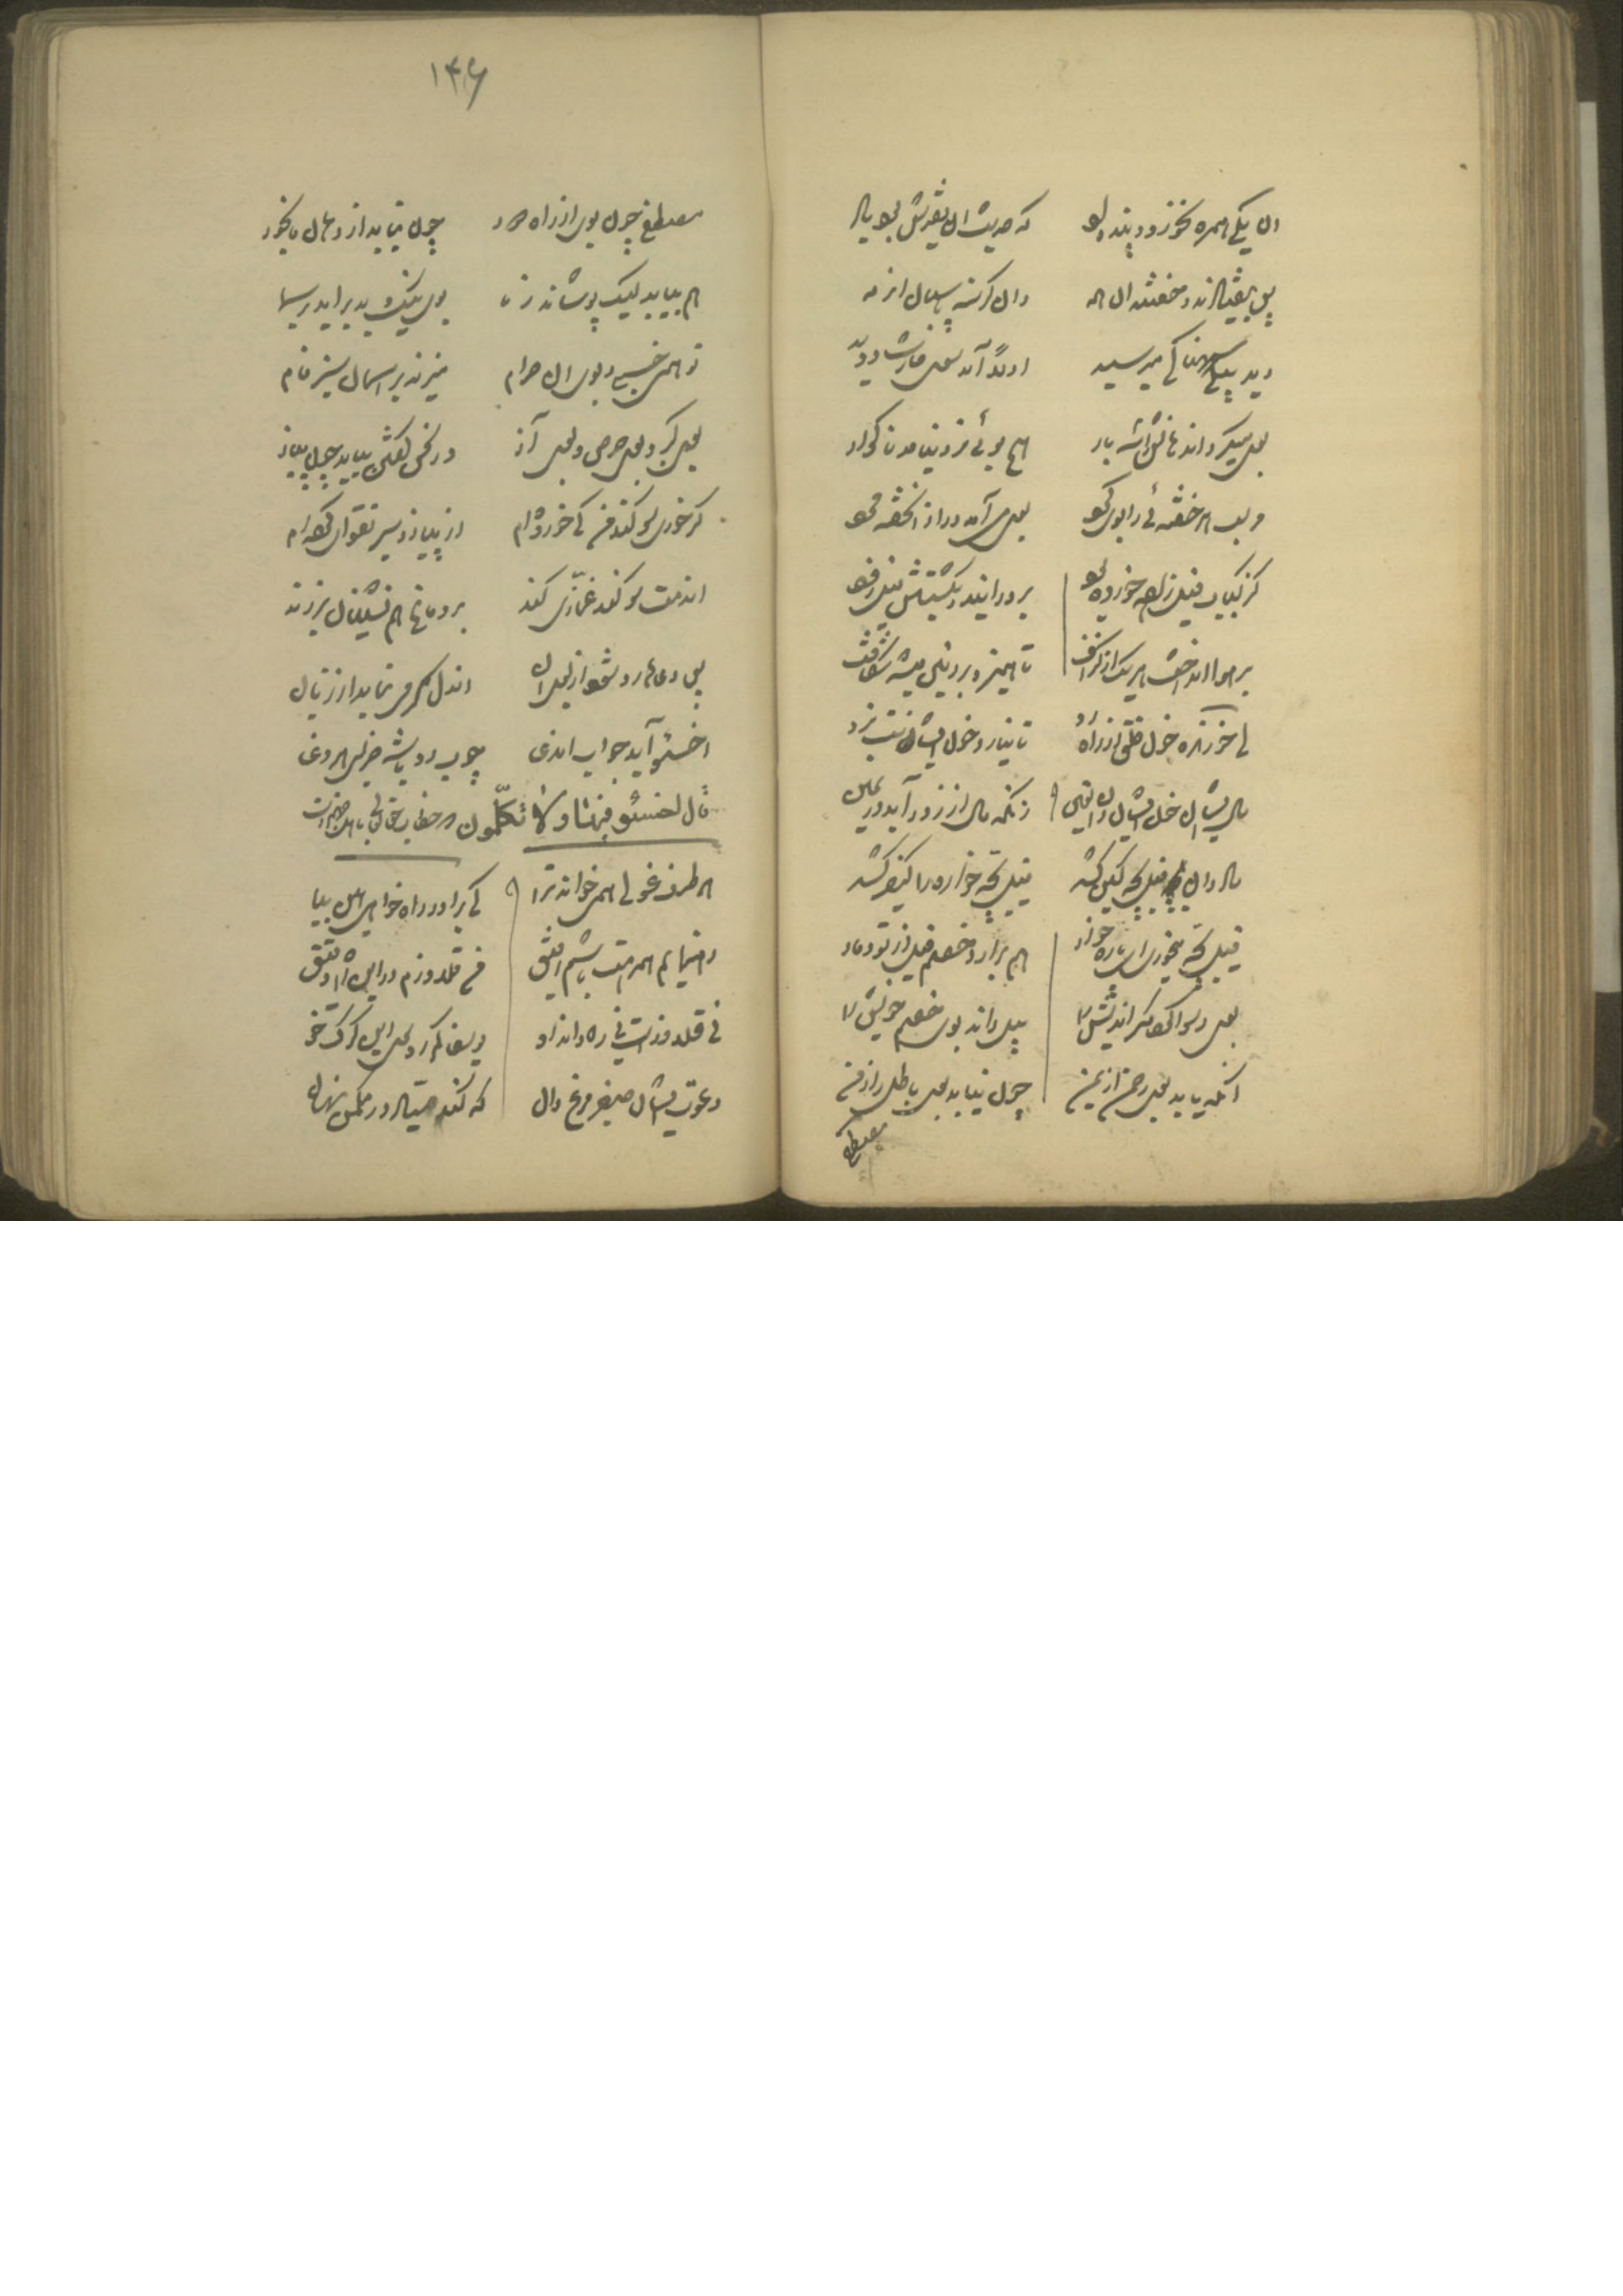 وان یکی همره نخورد و پند داد که حدیث آن فقیرش بود یاد
پس بیفتادند و خفتند آن همه وان گرسنه پاسبان از رمه
دید پیلی سهمناکی میرسید اولاً آمد سوی حارث دوید
بوی میکرد آن دهانش را سه بار هیچ بوئی زو نیامد ناگوار
مر لب هر خفته‌ئی را بوی کرد بوی می‌آمد ورا زان خفته مرد
کز کباب پیل زاده خورده بود بر درانید و بکشتش پیل زود
بر هوا انداخت هر یک از گزاف تا همیزد بر زمین میشد شکاف
ای خورنده خون خلق از راه برد تا نیارد خون ایشانت نبرد
مال ایشان خون ایشان دان یقین زانکه مال از زور آید در یمین
مادر آن پیل بچه کین کشد پیل بچه خواره را کیفر کشد
پیل بچه میخوری ای پاره خوار هم برآرد خصم پیل از تو دمار
بوی رسوا کرد مکر اندیش را پیل داند بوی خصم خویش را
آنکه یابد بوی رحمن از یمن چون نیابد بوی باطل را ز من
مصطفی
۱۴۶
مصطفی چون بوی از راه دور چون نیابد از دهان ما بخور
هم بیابد لیک پوشاند ز ما بوی نیک و بد برآید بر سما
تو همی خسبی و بوی آن حرام میزند بر آسمان سبز فام
بوی کبر و بوی حرص و بوی آز در سخن گفتن بیاید چون پیاز
گر خوری سوگند من کی خورده‌ام از پیاز و سیر تقوی کرده‌ام
آن دمت سوگند غمّازی کند بر دماغ همنشینان برزند
پس دعاها رد شود از بوی آن آن دل کژ مینماید از زبان
اخسئوا آید جواب آن دعا چوب رد باشد جزای هر دغا
قال اخسئو فیها ولا تکلّمون
هر طرف غولی همی خواند ترا کی برادر راه خواهی هین بیا
رهنمایم همرهت باشم رفیق من قلاوزم در این راه دقیق
نی قلاوزست نی ره داند او یوسفا کم رو سوی این گرگ خو
دعوت ایشان صفیر مرغ دان که کند صیاد در مکمن نهان